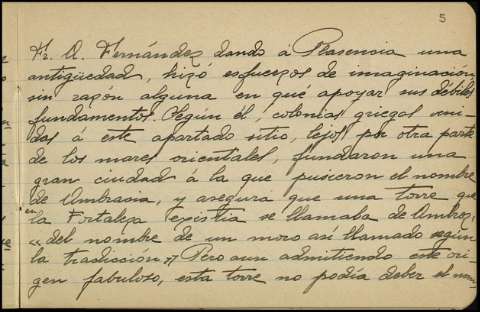 5
Fr. A. Fernández dando á Plasencia una
antigüedad, hizo esfuerzos de imaginación
sin razón alguna en qué apoyar sus débiles
fundamentos. Según él, colonias griegas veni-
das á este apartado sitio, lejos por otra parte
de los mares orientales, fundaron una
gran ciudad á la que pusieron el nombre
de Ambracia, y asegura que una torre que
en la Fortaleza existia se llamaba de Ambroz,
"del nombre de un moro así llamado según
la tradicion". Pero aun admitiendo este ori-
gen fabuloso, esta torre no podía deber el nom-